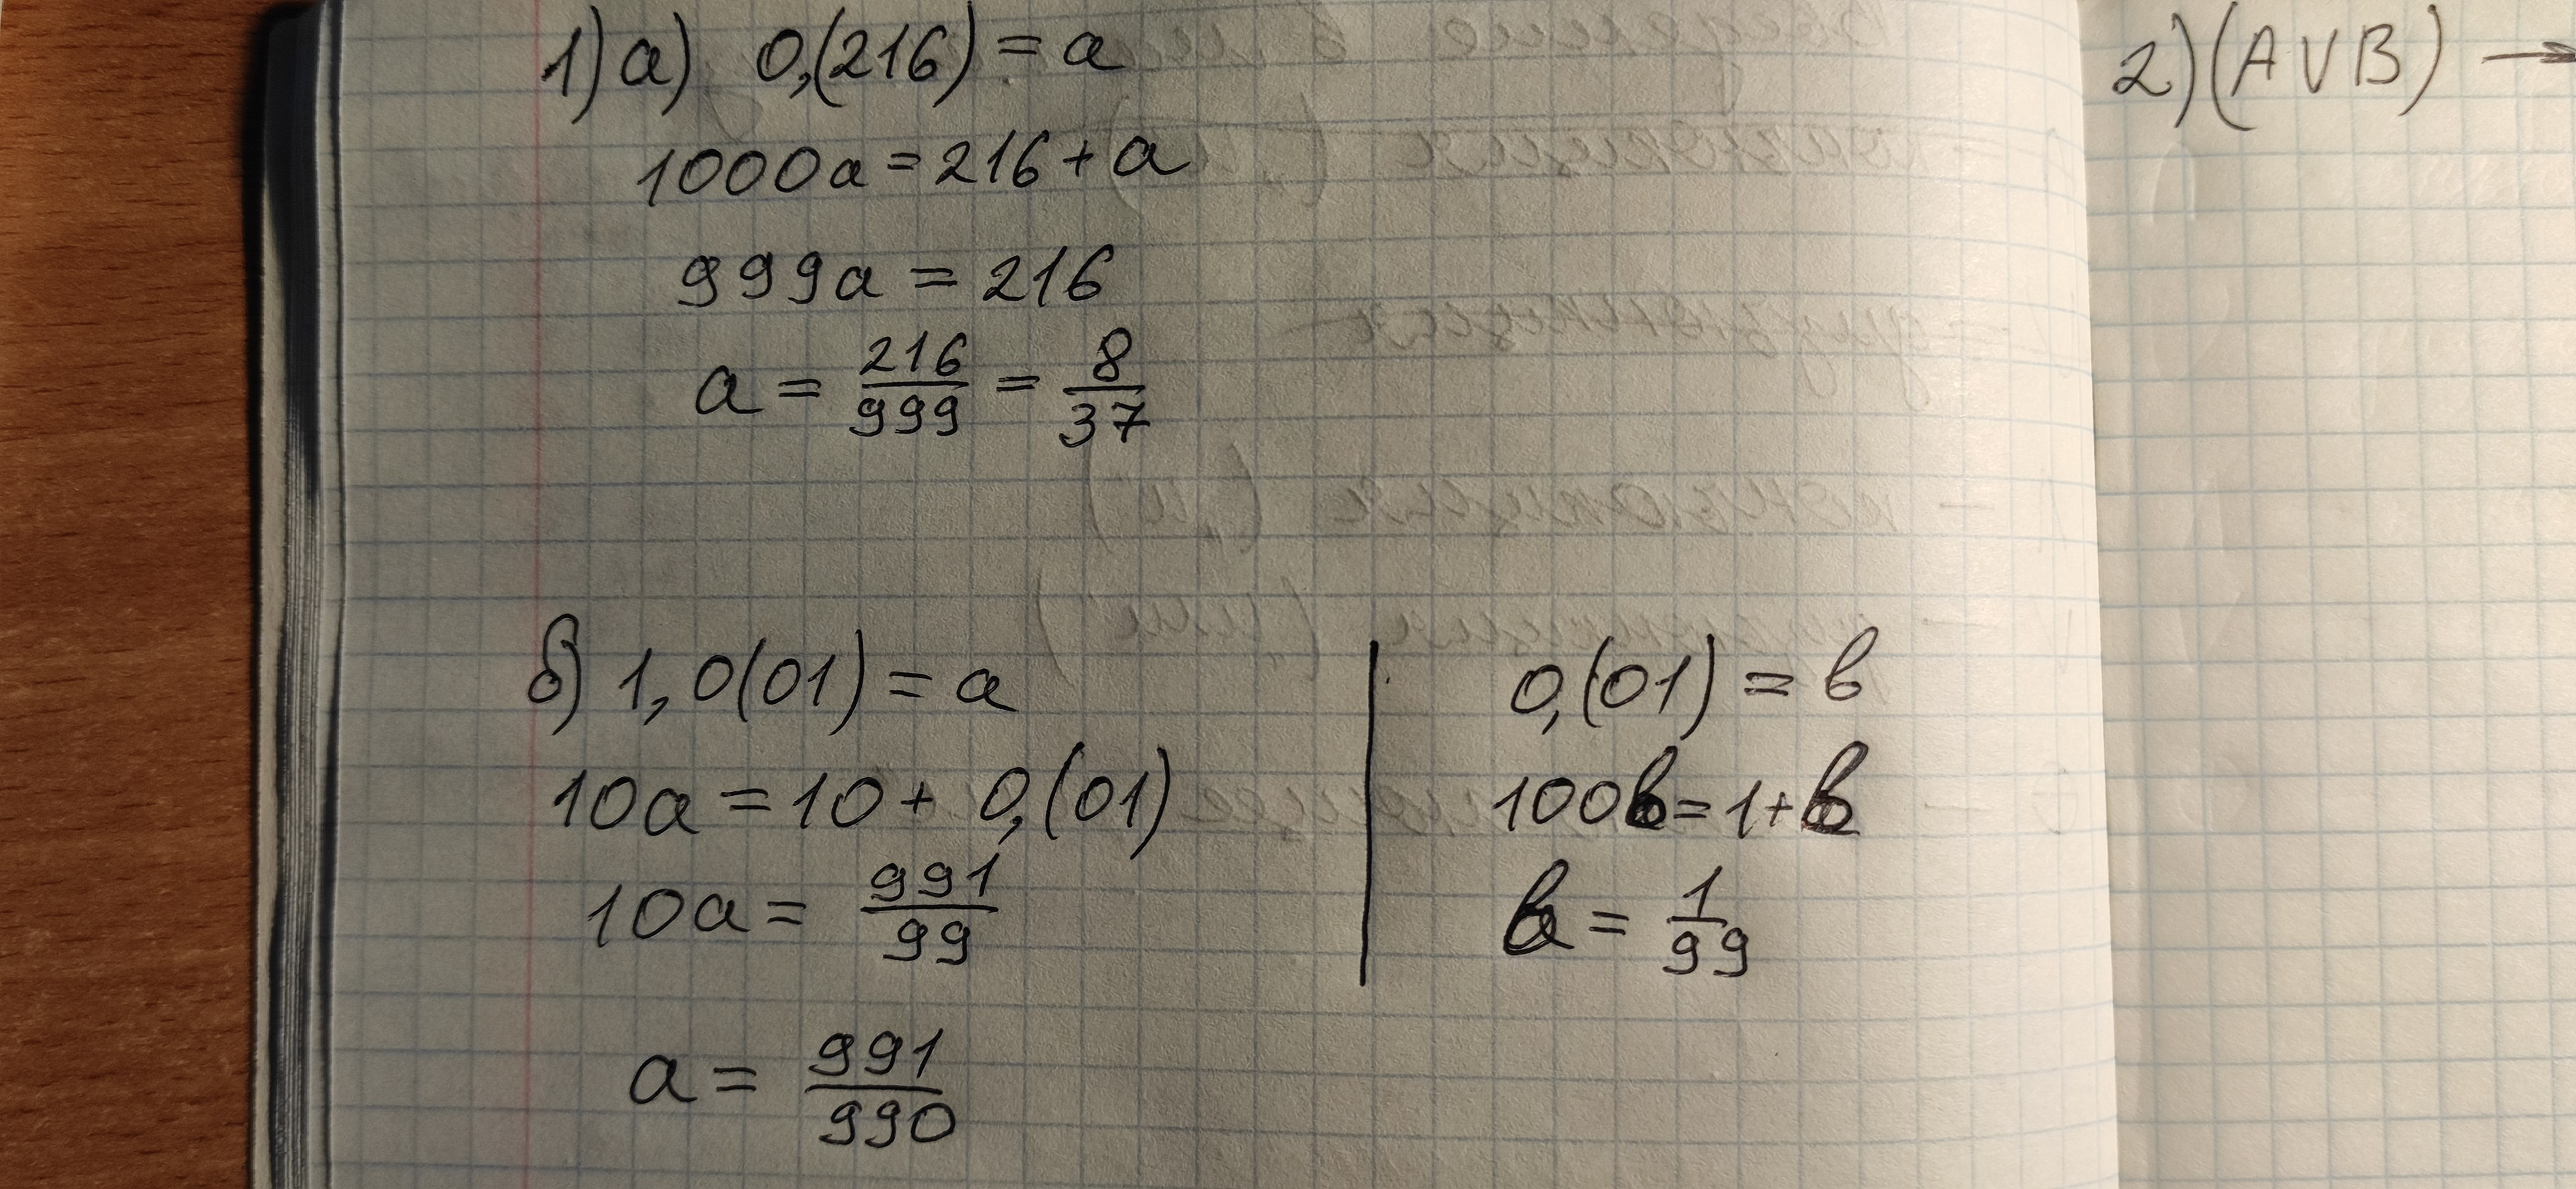 1) а) 0,(216) = a
1000a = 216 + a
999a = 216
a = 216/999 = 8/37
б) 1,0(01) = a
10a = 10 + 0,(01)
10a = 991/99
a = 991/990
0,(01) = b
100b = 1 + b
b = 1/99
2) (A V B) →